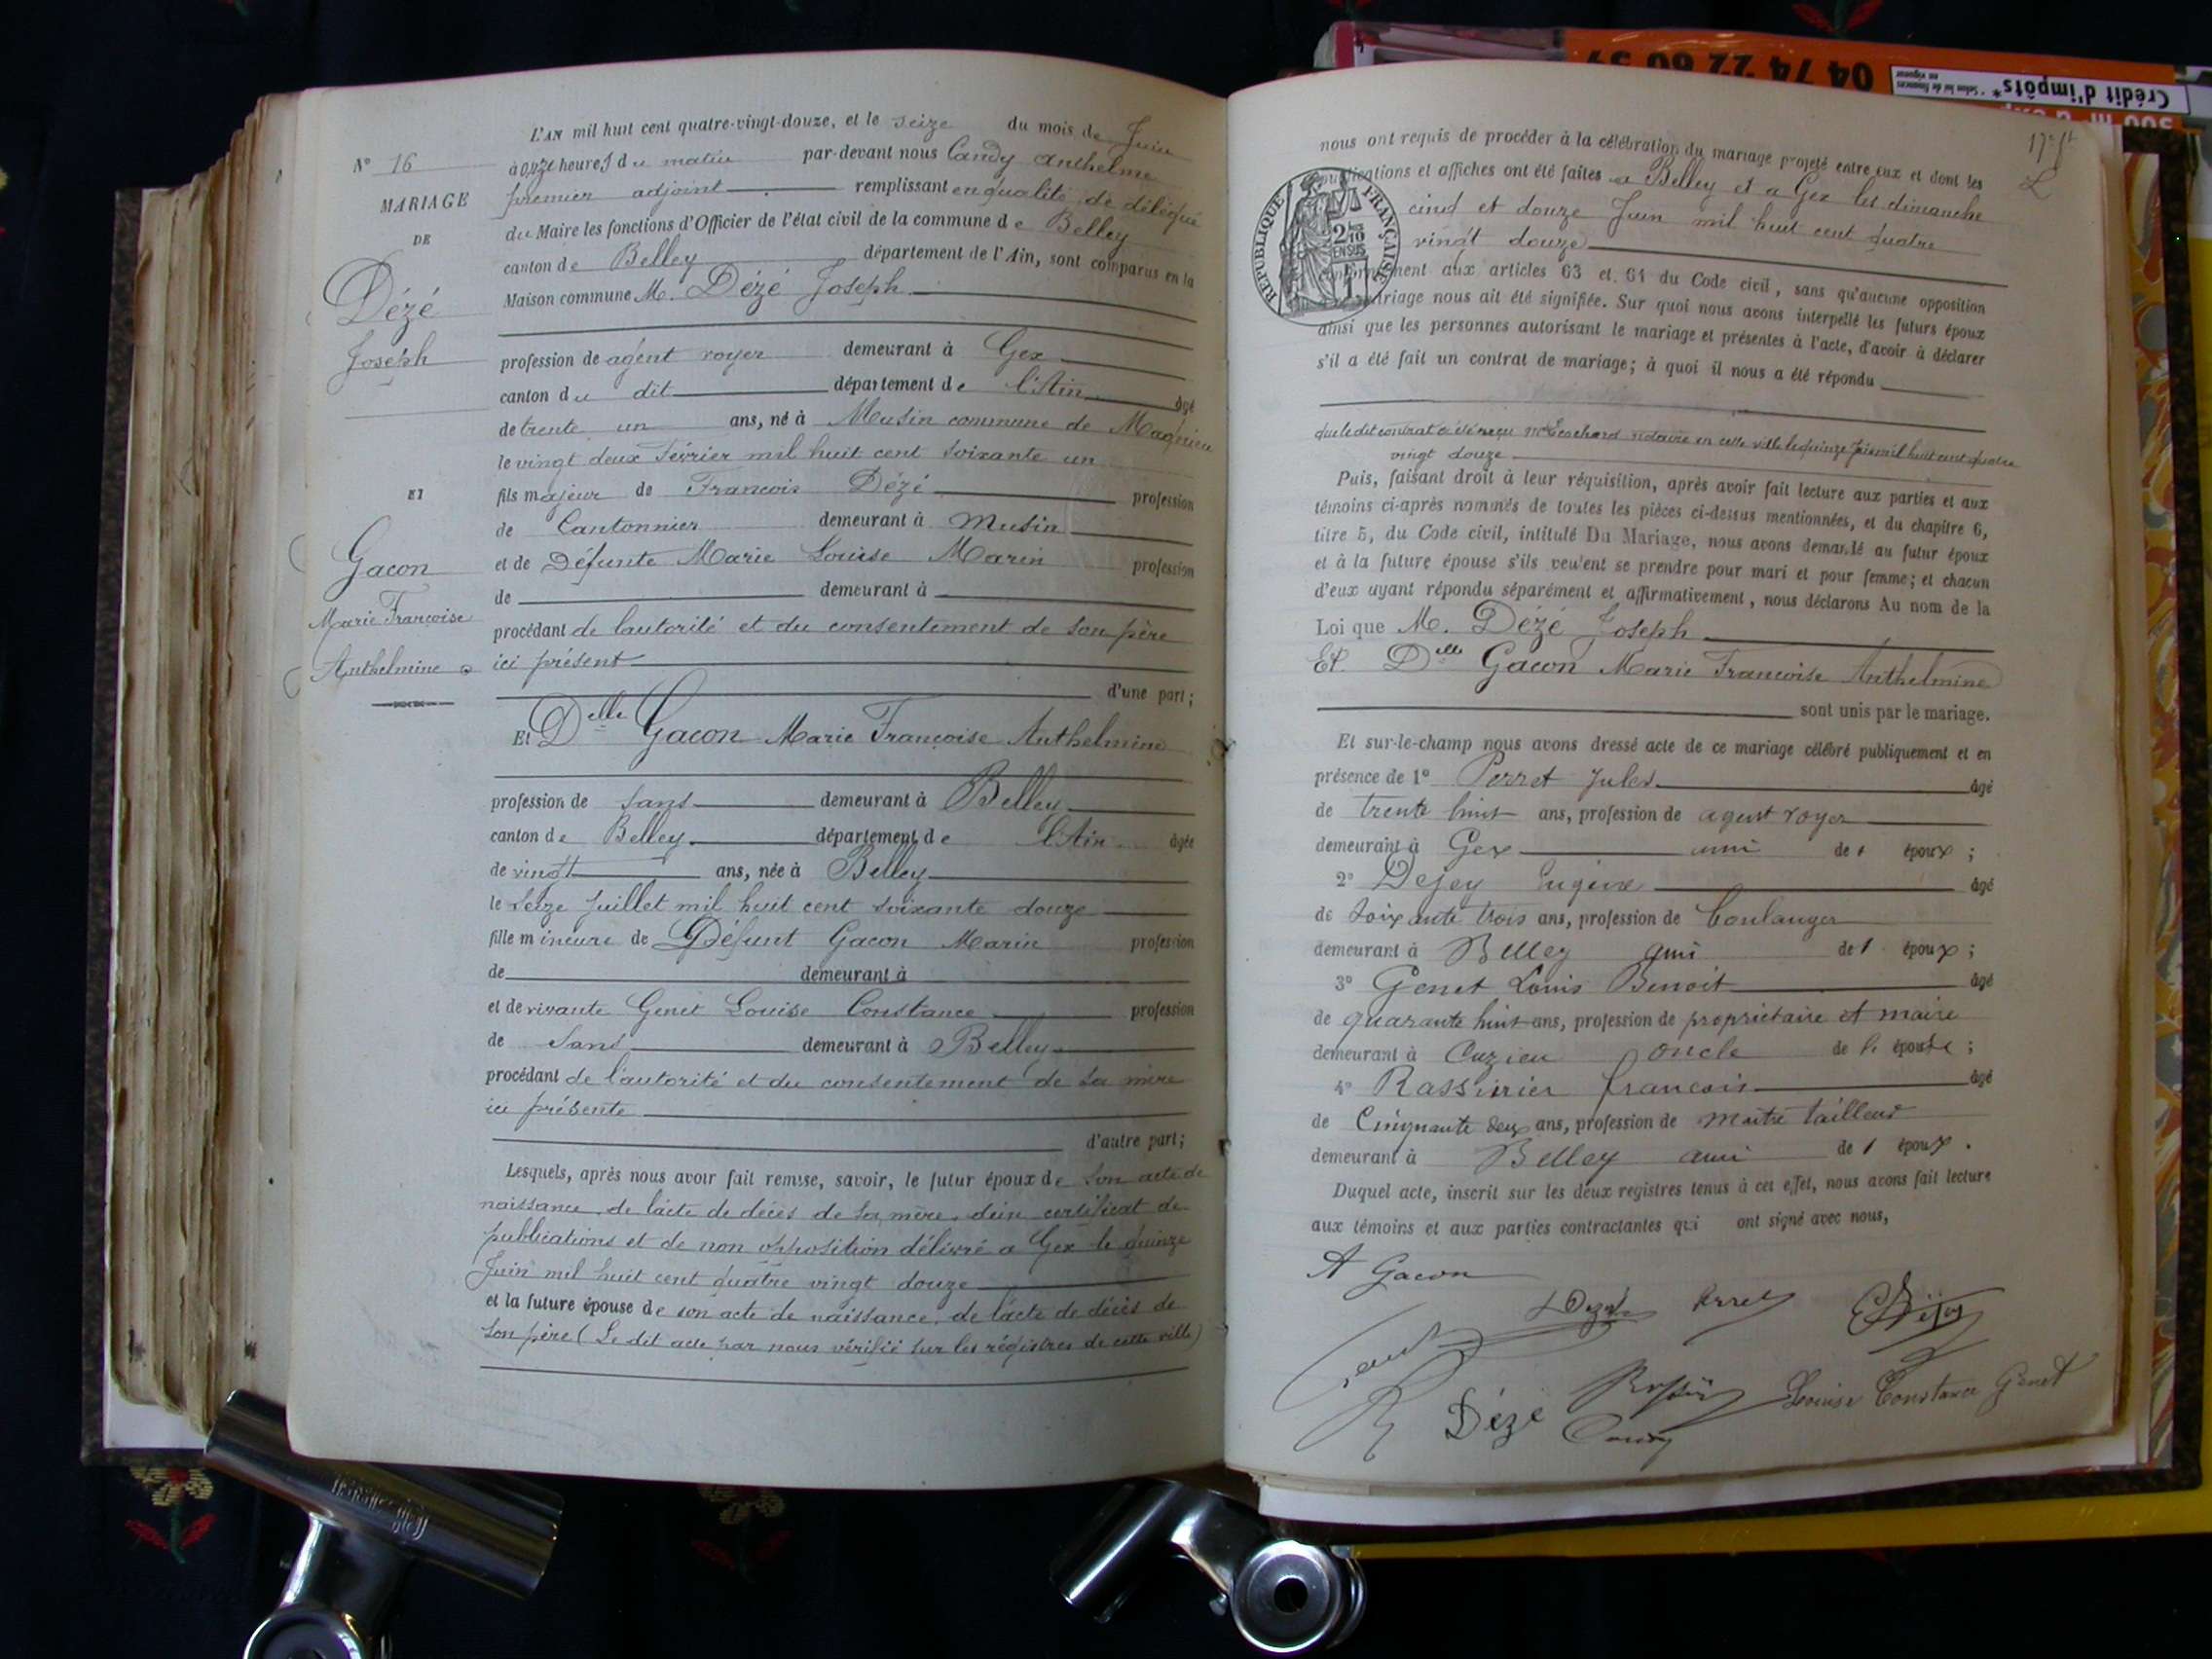 L'AN mil huit cent quatre-vingt-douze, et le seize du mois de Juin
à onze heures du matin par-devant nous Candy Anthelme
premier adjoint remplissant en qualité de délégué
du Maire les fonctions d'Officier de l'état civil de la commune de Belley
canton de Belley département de l'Ain, sont comparus en la
Maison commune M. Dézé Joseph
profession de agent voyer demeurant à Gex
canton du dit département de l'Ain âgé
de trente un ans, né à Musin commune de Magnieu
le vingt deux Février mil huit cent soixante un
fils majeur de François Dézé profession
de Cantonnier demeurant à Musin
et de Défunte Marie Louise Marin profession
de demeurant à
procédant de l'autorité et du consentement de son père
ici présent
d'une part;
Et Delle Gacon Marie Françoise Anthelmine
profession de sans demeurant à Belley
canton de Belley département de l'Ain âgée
de vingt ans, née à Belley
le seize Juillet mil huit cent soixante douze
fille mineure de Défunt Gacon Marin profession
de demeurant à
et de vivante Genet Louise Constance profession
de Sans demeurant à Belley
procédant de l'autorité et du consentement de sa mère
ici présente
d'autre part;
Lesquels, après nous avoir fait remise, savoir, le futur époux de son acte de
naissance, de l'acte de décès de sa mère, d'un certificat de
publications et de non opposition délivré a Gex le quinze
Juin mil huit cent quatre vingt douze
et la future épouse de son acte de naissance, de l'acte de décès de
son père (Le dit acte par nous vérifié sur les régistres de cette ville)
N° 16
MARIAGE
DE
Dézé
Joseph
ET
Gacon
Marie Françoise
Anthelmine
nous ont requis de procéder à la célébration du mariage projeté entre eux et dont les
publications et affiches ont été faites a Belley et a Gex les dimanche
cinq et douze Juin mil huit cent quatre
vingt douze
conformément aux articles 63 et 64 du Code civil, sans qu'aucune opposition
mariage nous ait été signifiée. Sur quoi nous avons interpellé les futurs époux
ainsi que les personnes autorisant le mariage et présentes à l'acte, d'avoir à déclarer
s'il a été fait un contrat de mariage; à quoi il nous a été répondu
que le dit contrat a été reçu notaire en cette ville le quinze Juin mil huit cent quatre
vingt douze
Puis, faisant droit à leur réquisition, après avoir fait lecture aux parties et aux
témoins ci-après nommés de toutes les pièces ci-dessus mentionnées, et du chapitre 6,
titre 5, du Code civil, intitulé Du Mariage, nous avons demandé au futur époux
et à la future épouse s'ils veulent se prendre pour mari et pour femme; et chacun
d'eux ayant répondu séparément et affirmativement, nous déclarons Au nom de la
Loi que M. Dézé Joseph
Et Delle Gacon Marie Françoise Anthelmine
sont unis par le mariage.
Et sur-le-champ nous avons dressé acte de ce mariage célébré publiquement et en
présence de 1° Perret Jules âgé
de trente huit ans, profession de agent voyer
demeurant à Gex ami de l époux;
2° Dejey Eugène âgé
de soixante trois ans, profession de boulanger
demeurant à Belley ami de l époux;
3° Genet Louis Benoit âgé
de quarante huit ans, profession de propriétaire et maire
demeurant à Cuzieu oncle de l' épouse;
4° François âgé
de Cinquante deux ans, profession de maitre tailleur
demeurant à Belley ami de l époux.
Duquel acte, inscrit sur les deux registres tenus à cet effet, nous avons fait lecture
aux témoins et aux parties contractantes qui ont signé avec nous,
A Gacon
Perret
Dézé
Louise Constance Genet
Candy
RÉPUBLIQUE FRANÇAISE
2/10
EN SUS
04 74 22 60 59
Crédit d'impôts*